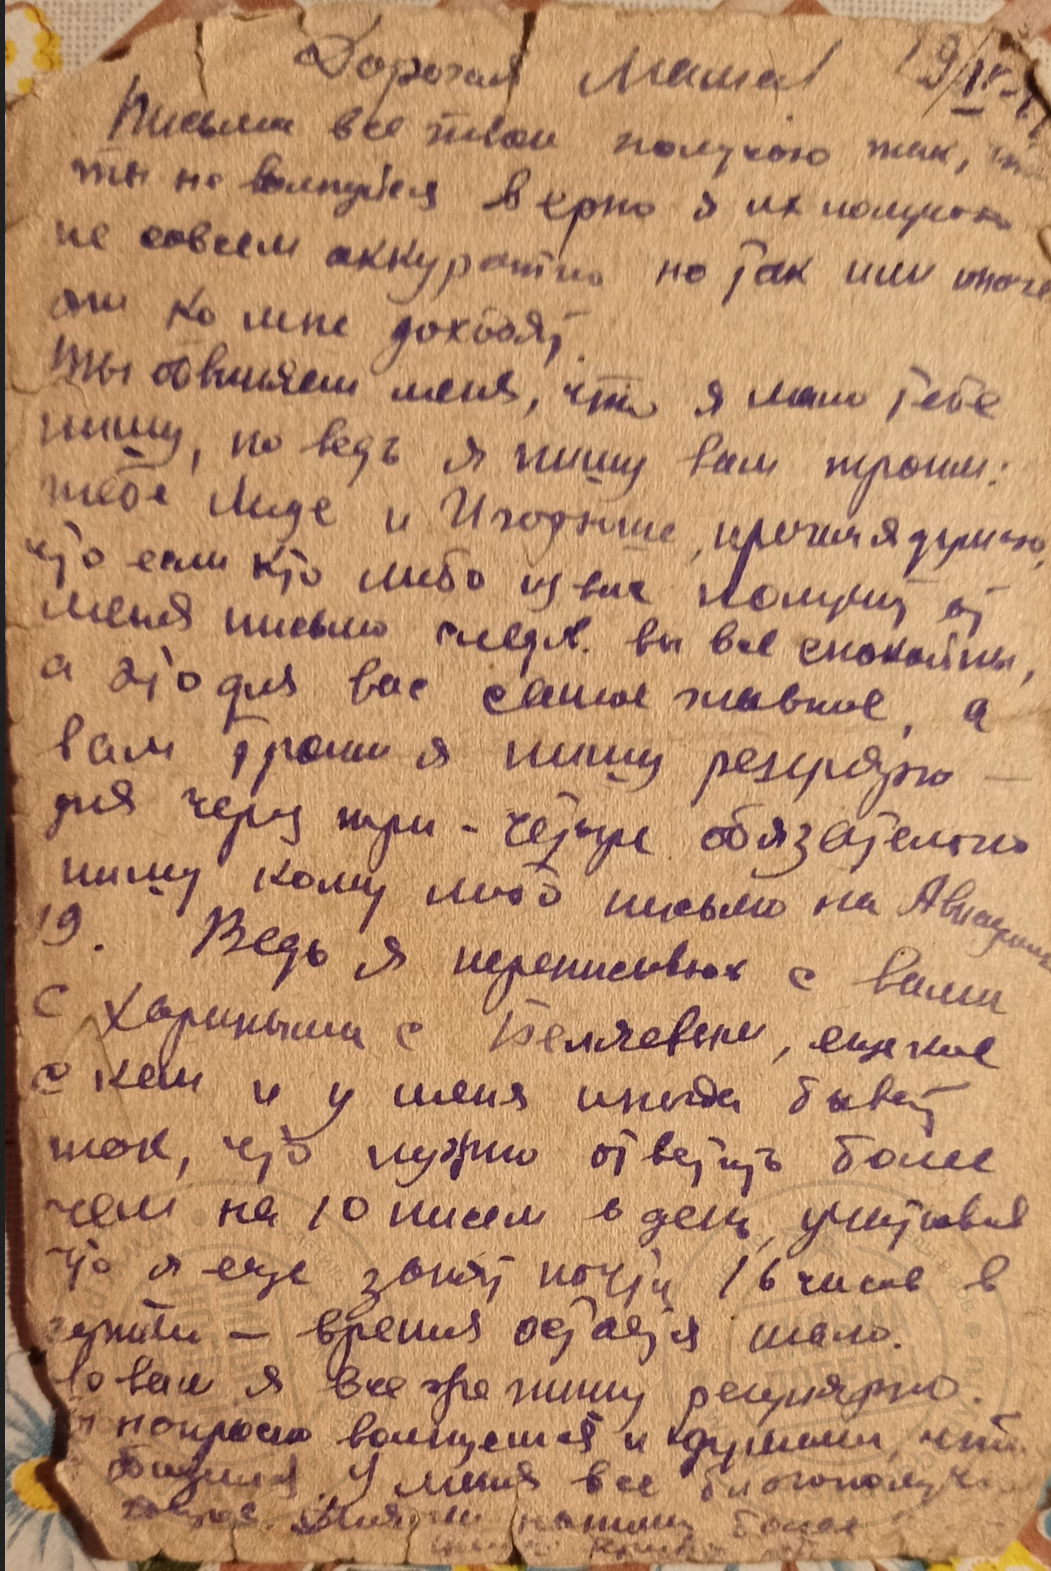 Дорогая Мама! 19/IV-
Письма все твои получаю так, что
ты не волнуйся верно я их получаю
не совсем аккуратно но так или иначе
они ко мне доходят.
Ты обвиняеш меня, что я мало тебе
пишу, но ведь я пишу вам троим:
тебе Лиде и , причем я думаю,
что если кто либо из вас получит от
меня письмо след. вы все спокойны,
а это для вас самое главное, а
вам троим я пишу регулярно —
дня через три - четыре обязательно
пишу кому либо письмо на
19. Ведь я переписываюсь с вами
с Хариными с , еще кое
с кем и у меня иногда бывает
так, что нужно ответить более
чем на 10 писем в день, учитывая
что я еще занят почти 16 часов в
сутки — времени остается мало.
Но вам я все же пишу регулярно.
и напрасно волнуешся и думаеш, что
У меня все благополучно
более